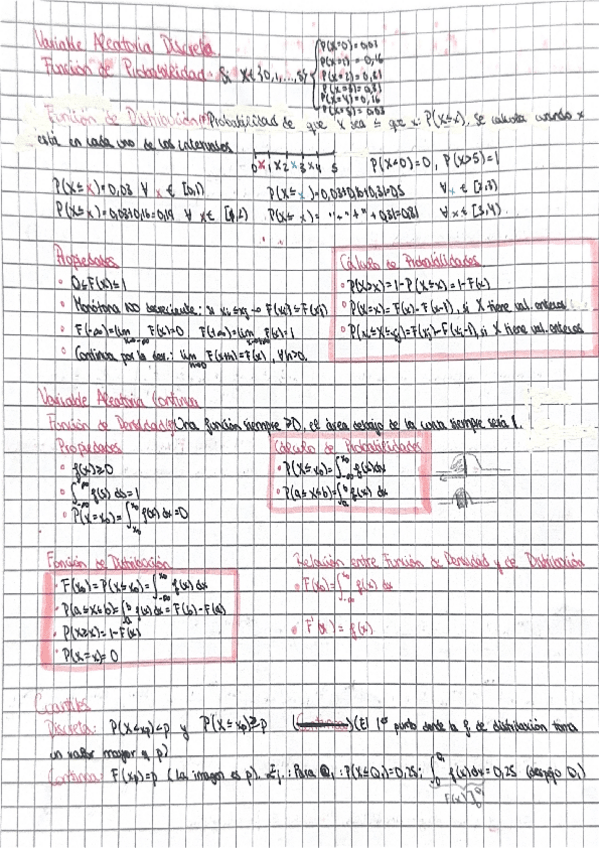 Variable Aleatoria Discreta
Función de Probabilidad: Si X∈{0,1,...,5}
P(X=0)=0,03
P(X=1)=0,16
P(X=2)=0,31
P(X=3)=0,31
P(X=4)=0,16
P(X=5)=0,03
Función de Distribución: Probabilidad de que X sea ≤ que x: P(X≤x), se calcula cuando x
está en cada uno de los intervalos
0 x 1 x 2 x 3 x 4 5 P(X<0)=0, P(X>5)=1
P(X≤x)=0,03 ∀ x ∈ [0,1) P(X≤x)=0,03+0,16+0,31=0,5 ∀ x ∈ [2,3)
P(X≤x)=0,03+0,16=0,19 ∀ x∈ [1,2) P(X≤x)= "+"+" + 0,31=0,81 ∀ x ∈ [3,4)
Propiedades
• 0≤F(x)≤1
• Monótona NO decreciente: si xi≤xj → F(xi)≤F(xj)
• F(-∞)=lim x→-∞ F(x)=0 F(+∞)=lim x→+∞ F(x)=1
• Continua por la der.: lim h→0 F(x+h)=F(x), ∀h>0.
Cálculo de Probabilidades
• P(X>x)=1-P(X≤x)=1-F(x)
• P(X=x)=F(x)-F(x-1), si X tiene val. enteros
• P(xi≤X≤xj)=F(xj)-F(xi-1), si X tiene val. enteros
Variable Aleatoria Continua
Función de Densidad: Una función siempre ≥0, el área debajo de la curva siempre será 1.
Propiedades
• f(x)≥0
• ∫-∞^∞ f(x) dx=1
• P(X=x0)=∫x0^x0 f(x) dx=0
Cálculo de Probabilidades
• P(X≤x0)=∫-∞^x0 f(x)dx
• P(a≤X≤b)=∫a^b f(x) dx
Función de Distribución
• F(x0)=P(X≤x0)=∫-∞^x0 f(x) dx
• P(a≤X≤b)=∫a^b f(x) dx=F(b)-F(a)
• P(X≥x)=1-F(x)
• P(X=x)=0
Relación entre Función de Densidad y de Distribución
• F(x0)=∫-∞^x0 f(x) dx
• F'(x)=f(x)
Cuantiles
Discreta: P(X<xp)<p y P(X≤xp)≥p (El 1er punto donde la f de distribución toma
un valor mayor q p)
Continua: F(xp)=p (La imagen es p). Ej.: Para Q1: P(X≤Q1)=0,25; ∫0^Q1 f(x)dx=0,25 (despejo Q1)
F(x)]